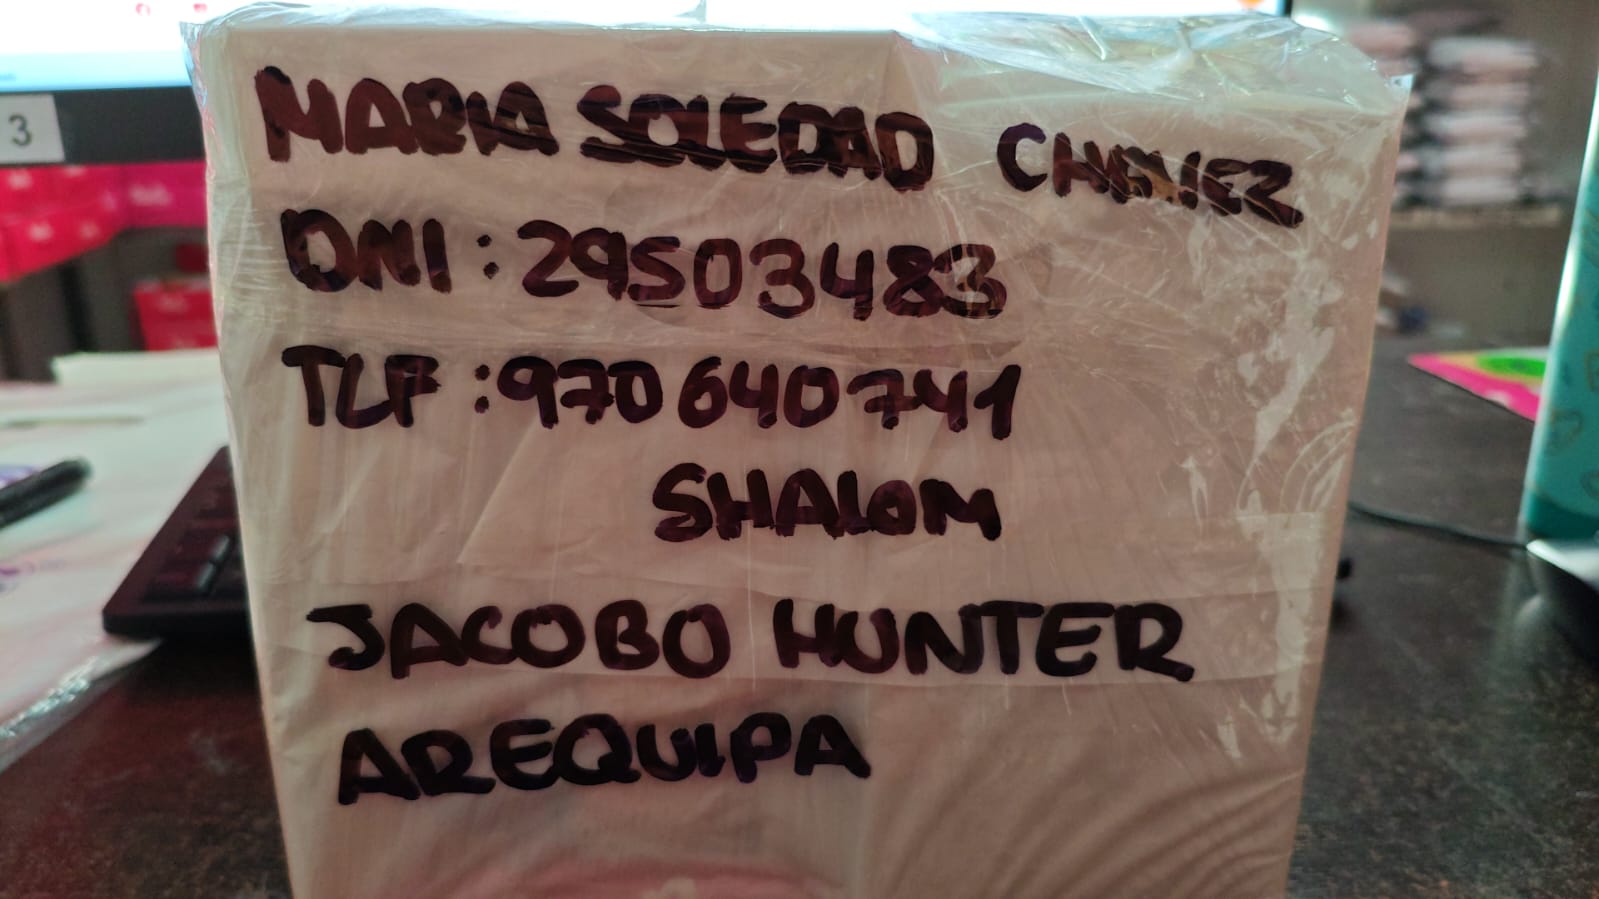 3
MARIA SOLEDAD CHAVEZ
DNI : 29503483
TLF : 970 640 741
SHALOM
JACOBO HUNTER
AREQUIPA